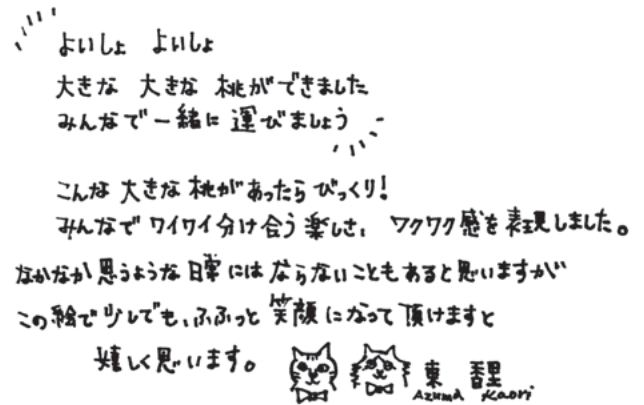 よいしょ よいしょ
大きな 大きな 桃ができました
みんなで一緒に運びましょう
こんな大きな桃があったらびっくり!
みんなでワイワイ分け合う楽しさ、ワクワク感を表現しました。
なかなか思うような日常にはならないこともあると思いますが
この絵で少しでも、ふふっと笑顔になって頂けますと
嬉しく思います。
東 香里
Azuma Kaori